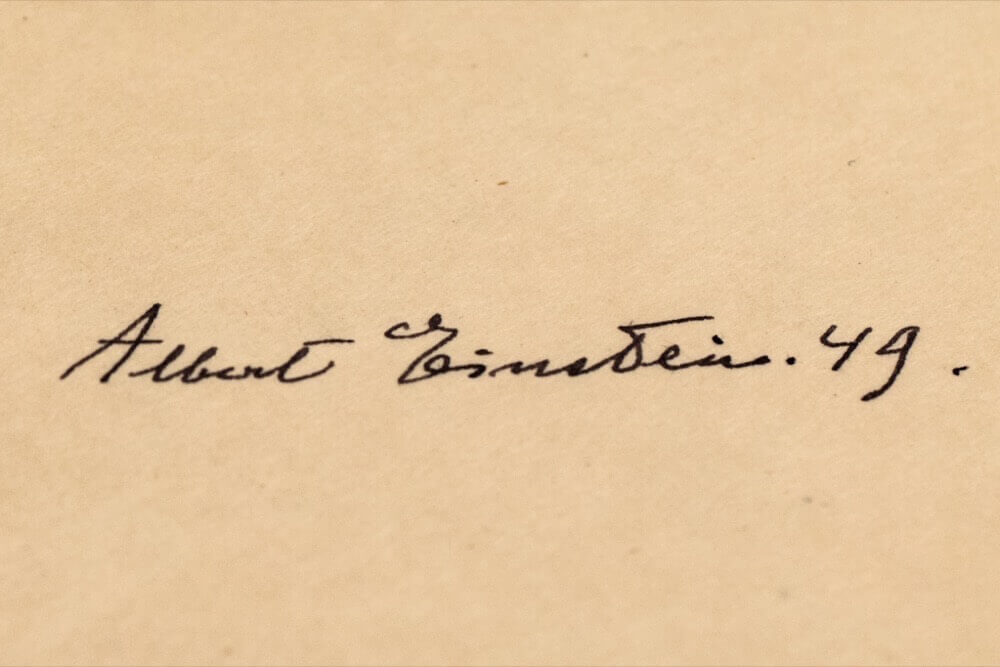 Albert Einstein. 49.